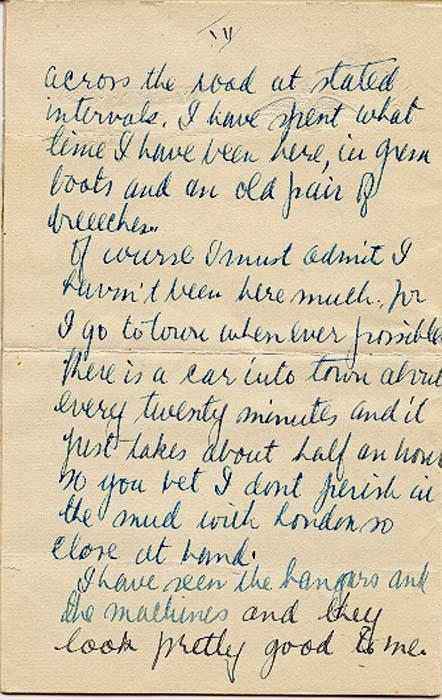 IV
across the road at stated
intervals. I have spent what
time I have been here, in gum
boots and an old pair of
breeches.
Of course I must admit I
havn't been here much, for
I go to town when ever possible
There is a car into town about
every twenty minutes and it
just takes about half an hour
so you bet I dont perish in
the mud with London so
close at hand.
I have seen the hangars and
the machines and they
look pretty good to me.